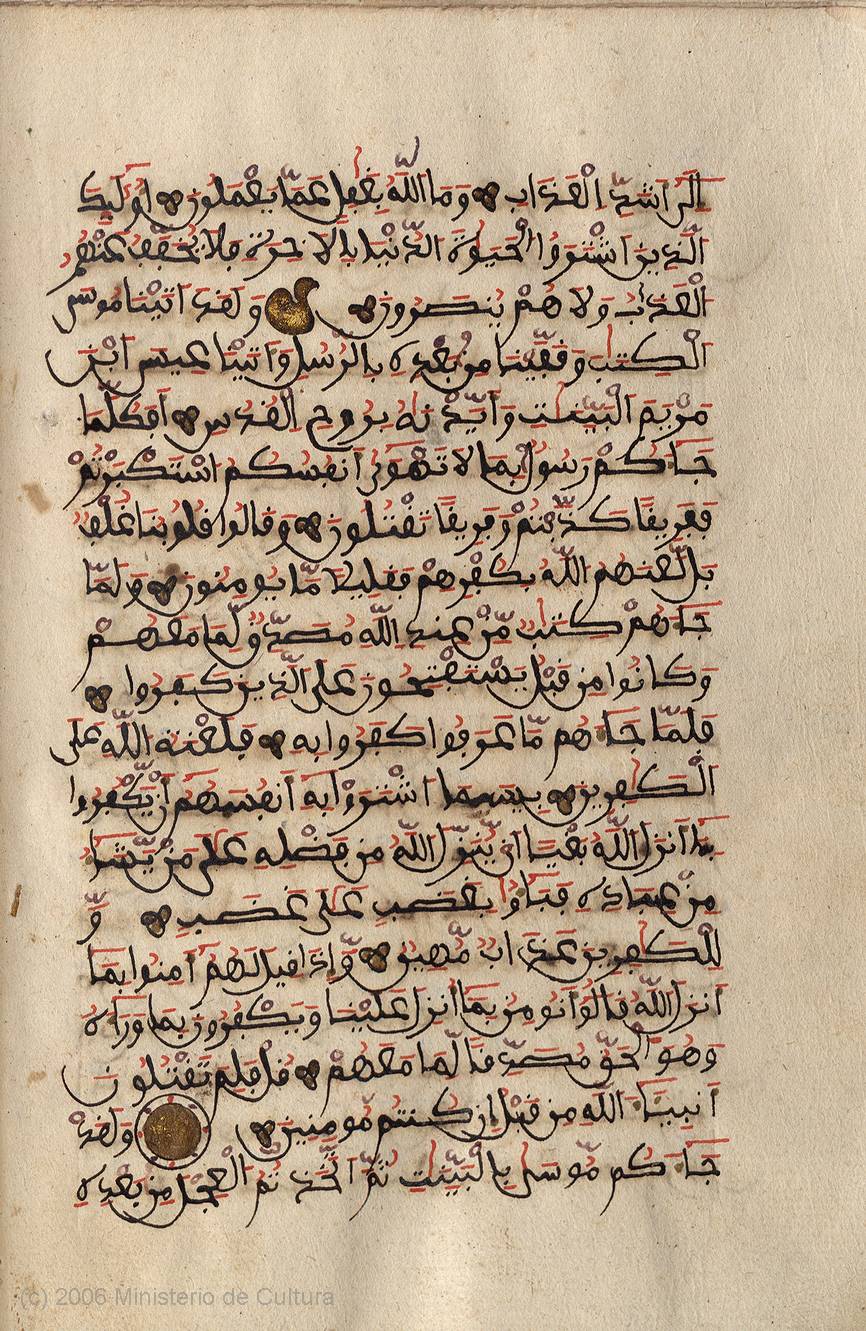 الى اشد العذاب وما الله بغفل عما يعملون اوليك
الذين اشتروا الحيوة الدنيا بالاخرة فلا يخفف عنهم
العذاب ولا هم ينصرون ولقد اتينا موسى
الكتب وقفينا من بعده بالرسل واتينا عيسى ابن
مريم البينت وايدنه بروح القدس افكلما
جاكم رسول بما لا تهوى انفسكم استكبرتم
ففريقا كذبتم وفريقا تقتلون وقالوا قلوبنا غلف
بل لعنهم الله بكفرهم فقليلا ما يومنون ولما
جاهم كتب من عند الله مصدق لما معهم
وكانوا من قبل يستفتحون على الذين كفروا
فلما جاهم ما عرفوا كفروا به فلعنة الله على
الكفرين بيسما اشتروا به انفسهم ان يكفروا
بما انزل الله بغيا ان ينزل الله من فضله على من يشا
من عباده فباو بغضب على غضب و
للكفرين عذاب مهين واذا قيل لهم امنوا بما
انزل الله قالوا نومن بما انزل علينا ويكفرون بما وراه
وهو الحق مصدقا لما معهم قل فلم تقتلون
انبيا الله من قبل ان كنتم مومنين ولقد
جاكم موسى بالبينت ثم اتخذتم العجل من بعده
(c) 2006 Ministerio de Cultura